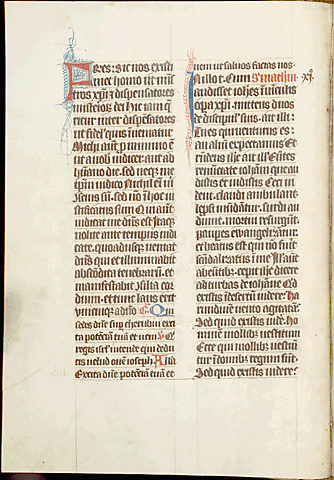 Fres: Sic nos existi
met homo ut mini
stros xpi et dispensatores
misteriorum dei hic iam que
ritur inter dispensatores
ut fidelis quis inveniatur
Michi autem pro minimo est
ut a vobis iudicer aut ab
humano die. sed neque me
ipsum iudico Nichil enim michi
conscius sum. sed non in hoc iu
stificatus sum Qui autem
iudicat me dominus est Itaque
nolite ante tempus iudi
care. quoadusque veniat
dominus qui et illuminabit
abscondita tenebrarum. et
manifestabit consilia cor
dium. et tunc laus erit
unicuique a deo Qui
sedes domine super cherubin exci
ta potentiam tuam et veni
regis israel intende qui dedu
cis velud ovem ioseph Alla
Excita domine potentiam tuam et
veni ut salvos facias nos.
In illo t. Cum S mathm xi
audisset iohes in vinculis
opera xpi. mittens duos
de discipulis suis. ait illi
Tu es qui venturus es:
an alium expectamus Et
respondens ihc ait illis Euntes
renunciate iohanni que au
distis et vidistis Ceci vi
dent. claudi ambulant.
leprosi mundantur. surdi au
diunt. mortui resurgunt.
pauperes evangelizantur.
et beatus est qui non fuerit
scandalizatus in me Illis autem
abeuntibus. cepit ihc dicere
ad turbas de iohanne Quid
existis in desertum videre Ha
rundinem vento agitatam.
Sed quid existis videre. Ho
minem mollibus vestitum
Ecce qui mollibus vestiun
tur in domibus regum sunt.
Sed quid existis videre: